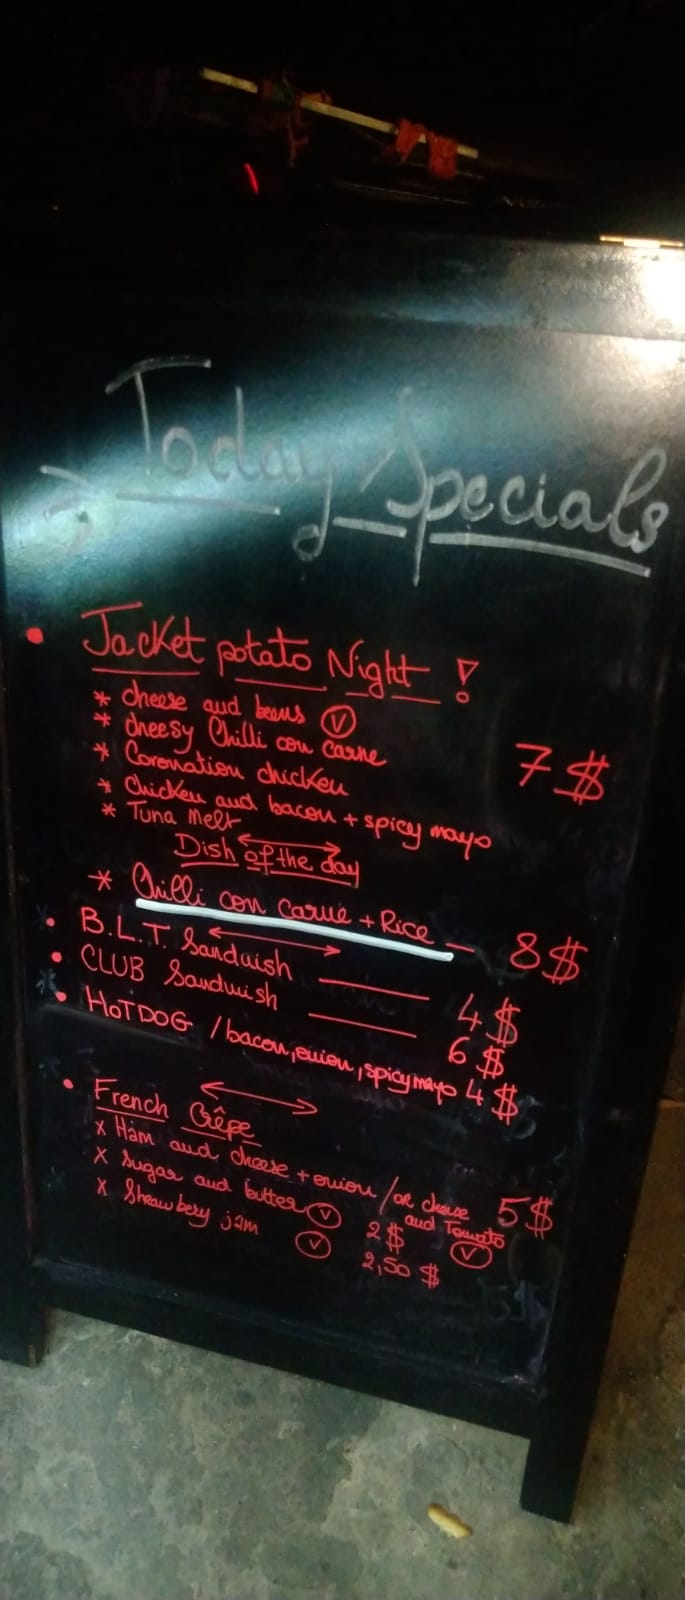 Today Specials
• Jacket potato Night !
* cheese and beans Ⓥ
* cheesy Chilli con carne
* Coronation chicken 7$
* Chicken and bacon + spicy mayo
* Tuna Melt
Dish of the day
* Chilli con carne + Rice — 8$
• B.L.T. Sandwish — 4$
• CLUB Sandwish — 6$
• HOTDOG / bacon, onion, spicy mayo 4$
• French Crêpe
x Ham and cheese + onion / or cheese and Tomato Ⓥ 5$
x Sugar and butter Ⓥ 2$
x Strawbery jam Ⓥ 2,50 $